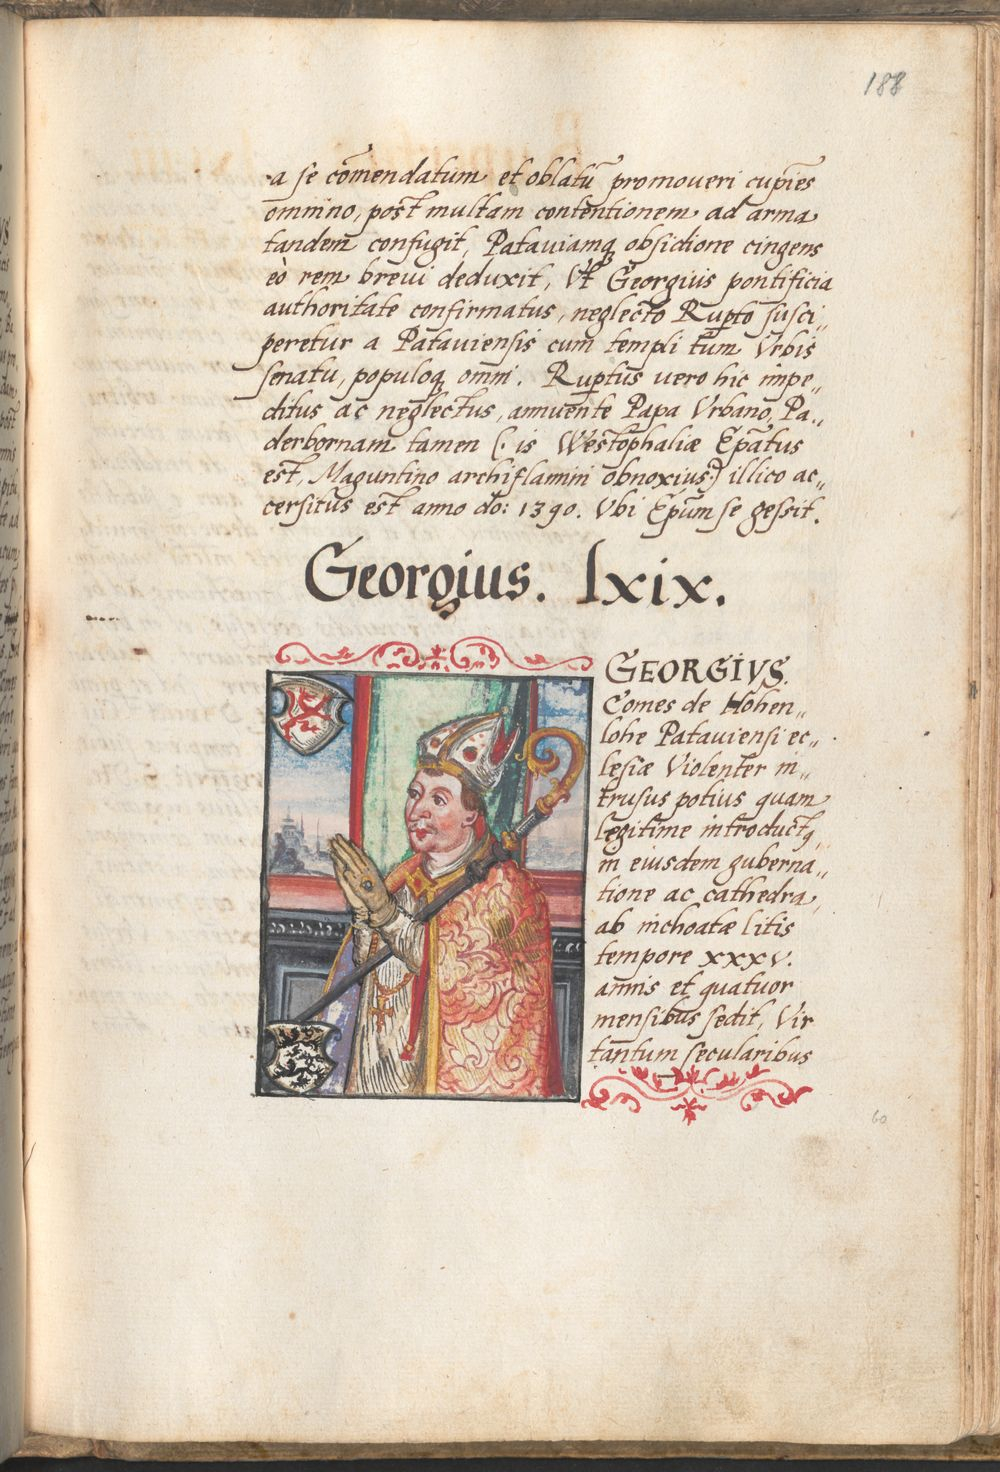 188
a se cōmendatum et oblatū promoveri cupiēs
omnino, post multam contentionem ad arma
tandem confugit, Patauiamq obsidione cingens
eò rem brevi deduxit, Vt Georgius pontificia
authoritate confirmatus, neglecto Rupto susci„
peretur a Patauiensis cum templi tum Vrbis
senatu, populoq omni. Ruptus uero hic impe„
ditus ac neglectus, annuente Papa Vrbano, Pa„
derbornam tamen (: is Westophaliæ Epatus
est, Maguntino archiflamini obnoxius:) illico ac„
cersitus est anno do: 1390. Vbi Epum se gessit.
Georgius. lxix.
GEORGIVS.
Comes de Hohen„
lohe Patauiensi ec„
lesiæ Violenter in„
trusus potius quam
legitime introductq
in eiusdem guberna„
tione ac cathedra,
ab inchoatæ litis
tempore xxxv.
annis et quatuor
mensibus sedit, Vir
tantum secularibus
60